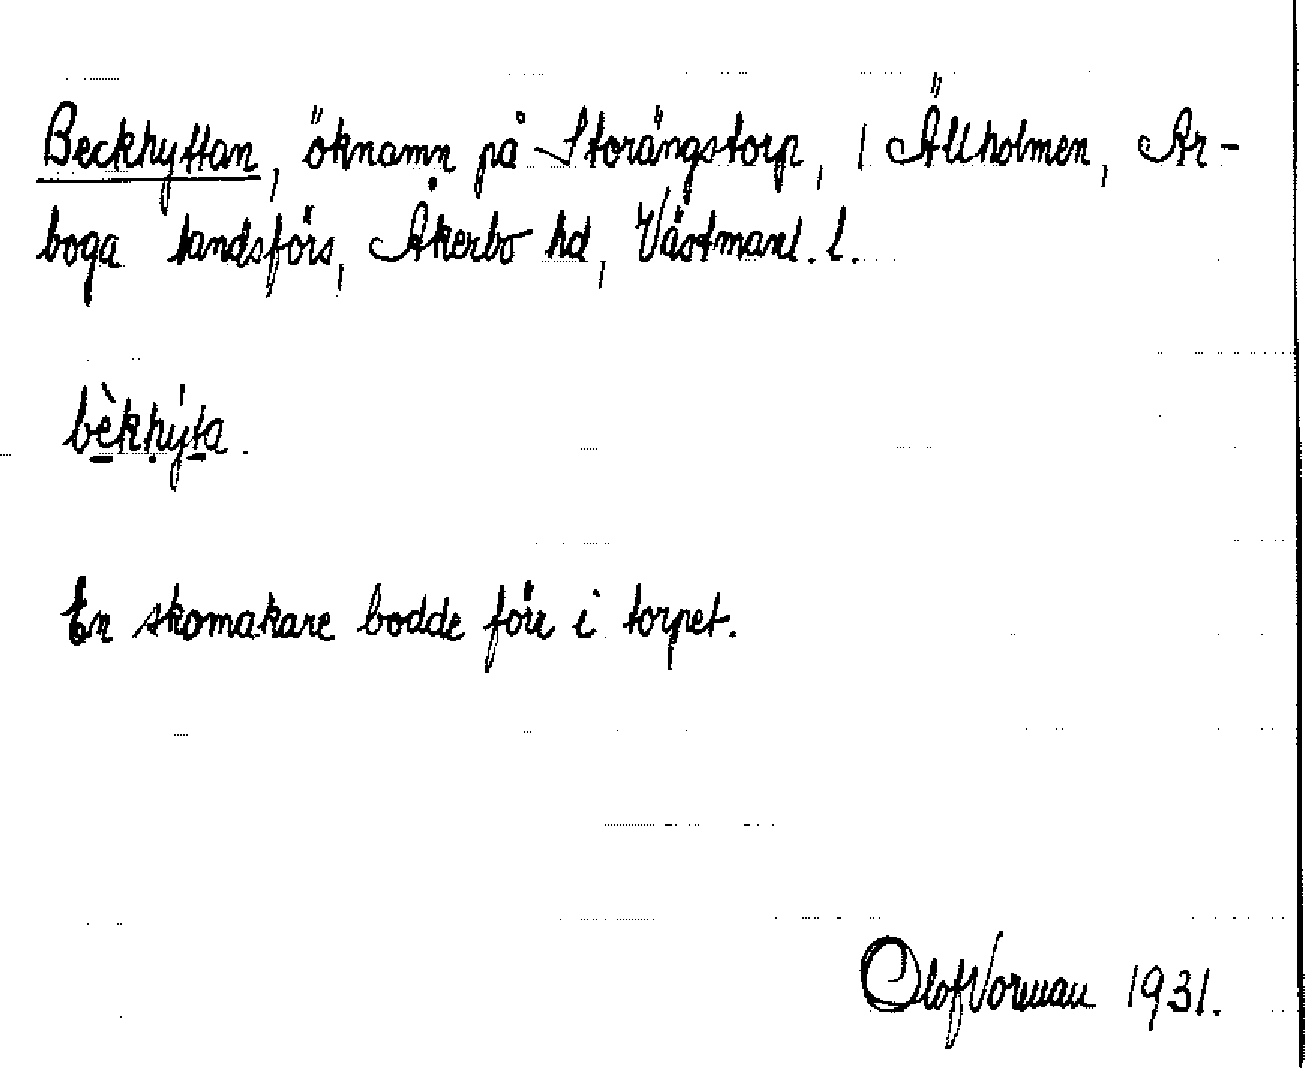 Beckhyttan, öknamn på Storängstorp, i Ällholmen, Ar-
boga landsförs, Åkerbo hd, Västmanl. l.
bèkhy̆́ta.
En skomakare bodde förr i torpet.
Olof Vorman 1931.